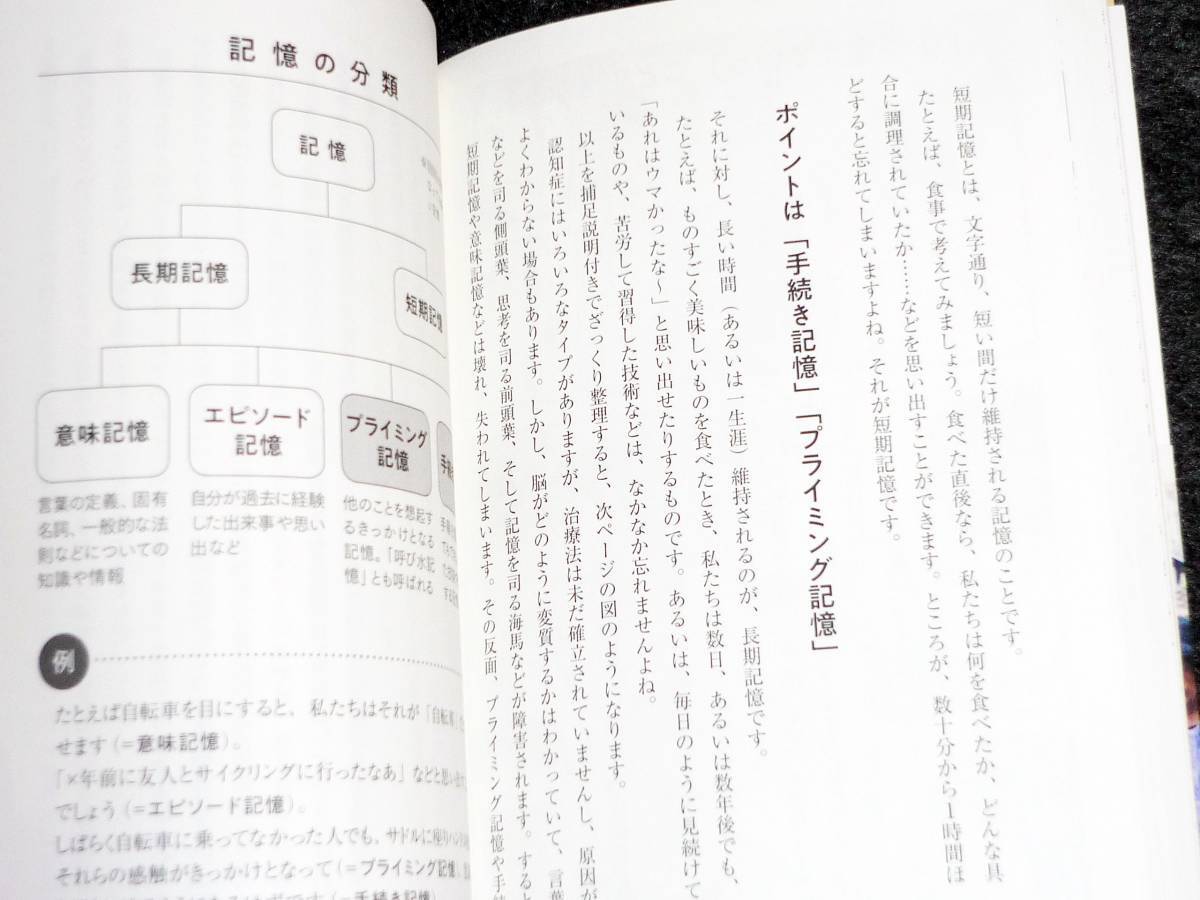 短期記憶とは、文字通り、短い間だけ維持される記憶のことです。
たとえば、食事で考えてみましょう。食べた直後なら、私たちは何を食べたか、どんな具
合に調理されていたか……などを思い出すことができます。ところが、数十分から1時間ほ
どすると忘れてしまいますよね。それが短期記憶です。
ポイントは「手続き記憶」「プライミング記憶」
それに対し、長い時間（あるいは一生涯）維持されるのが、長期記憶です。
たとえば、ものすごく美味しいものを食べたとき、私たちは数日、あるいは数年後でも、
「あれはウマかったな～」と思い出せたりするものです。あるいは、毎日のように見続けて
いるものや、苦労して習得した技術などは、なかなか忘れませんよね。
以上を捕足説明付きでざっくり整理すると、次ページの図のようになります。
認知症にはいろいろなタイプがありますが、治療法は未だ確立されていませんし、原因が
よくわからない場合もあります。しかし、脳がどのように変質するかはわかっていて、言葉
などを司る側頭葉、思考を司る前頭葉、そして記憶を司る海馬などが障害されます。すると
短期記憶や意味記憶などは壊れ、失われてしまいます。その反面、プライミング記憶や手続
記憶の分類
記憶
長期記憶
短期記憶
意味記憶
言葉の定義、固有
名詞、一般的な法
則などについての
知識や情報
エピソード
記憶
自分が過去に経験
した出来事や思い
出など
プライミング
記憶
他のことを想起す
るきっかけとなる
記憶。「呼び水記
憶」とも呼ばれる
例
たとえば自転車を目にすると、私たちはそれが「自転車」
せます（=意味記憶）。
「×年前に友人とサイクリングに行ったなあ」などと思い
でしょう（=エピソード記憶）。
しばらく自転車に乗ってなかった人でも、サドルに座りハンドル
それらの感触がきっかけとなって（=プライミング記憶）、
（=手続き記憶）